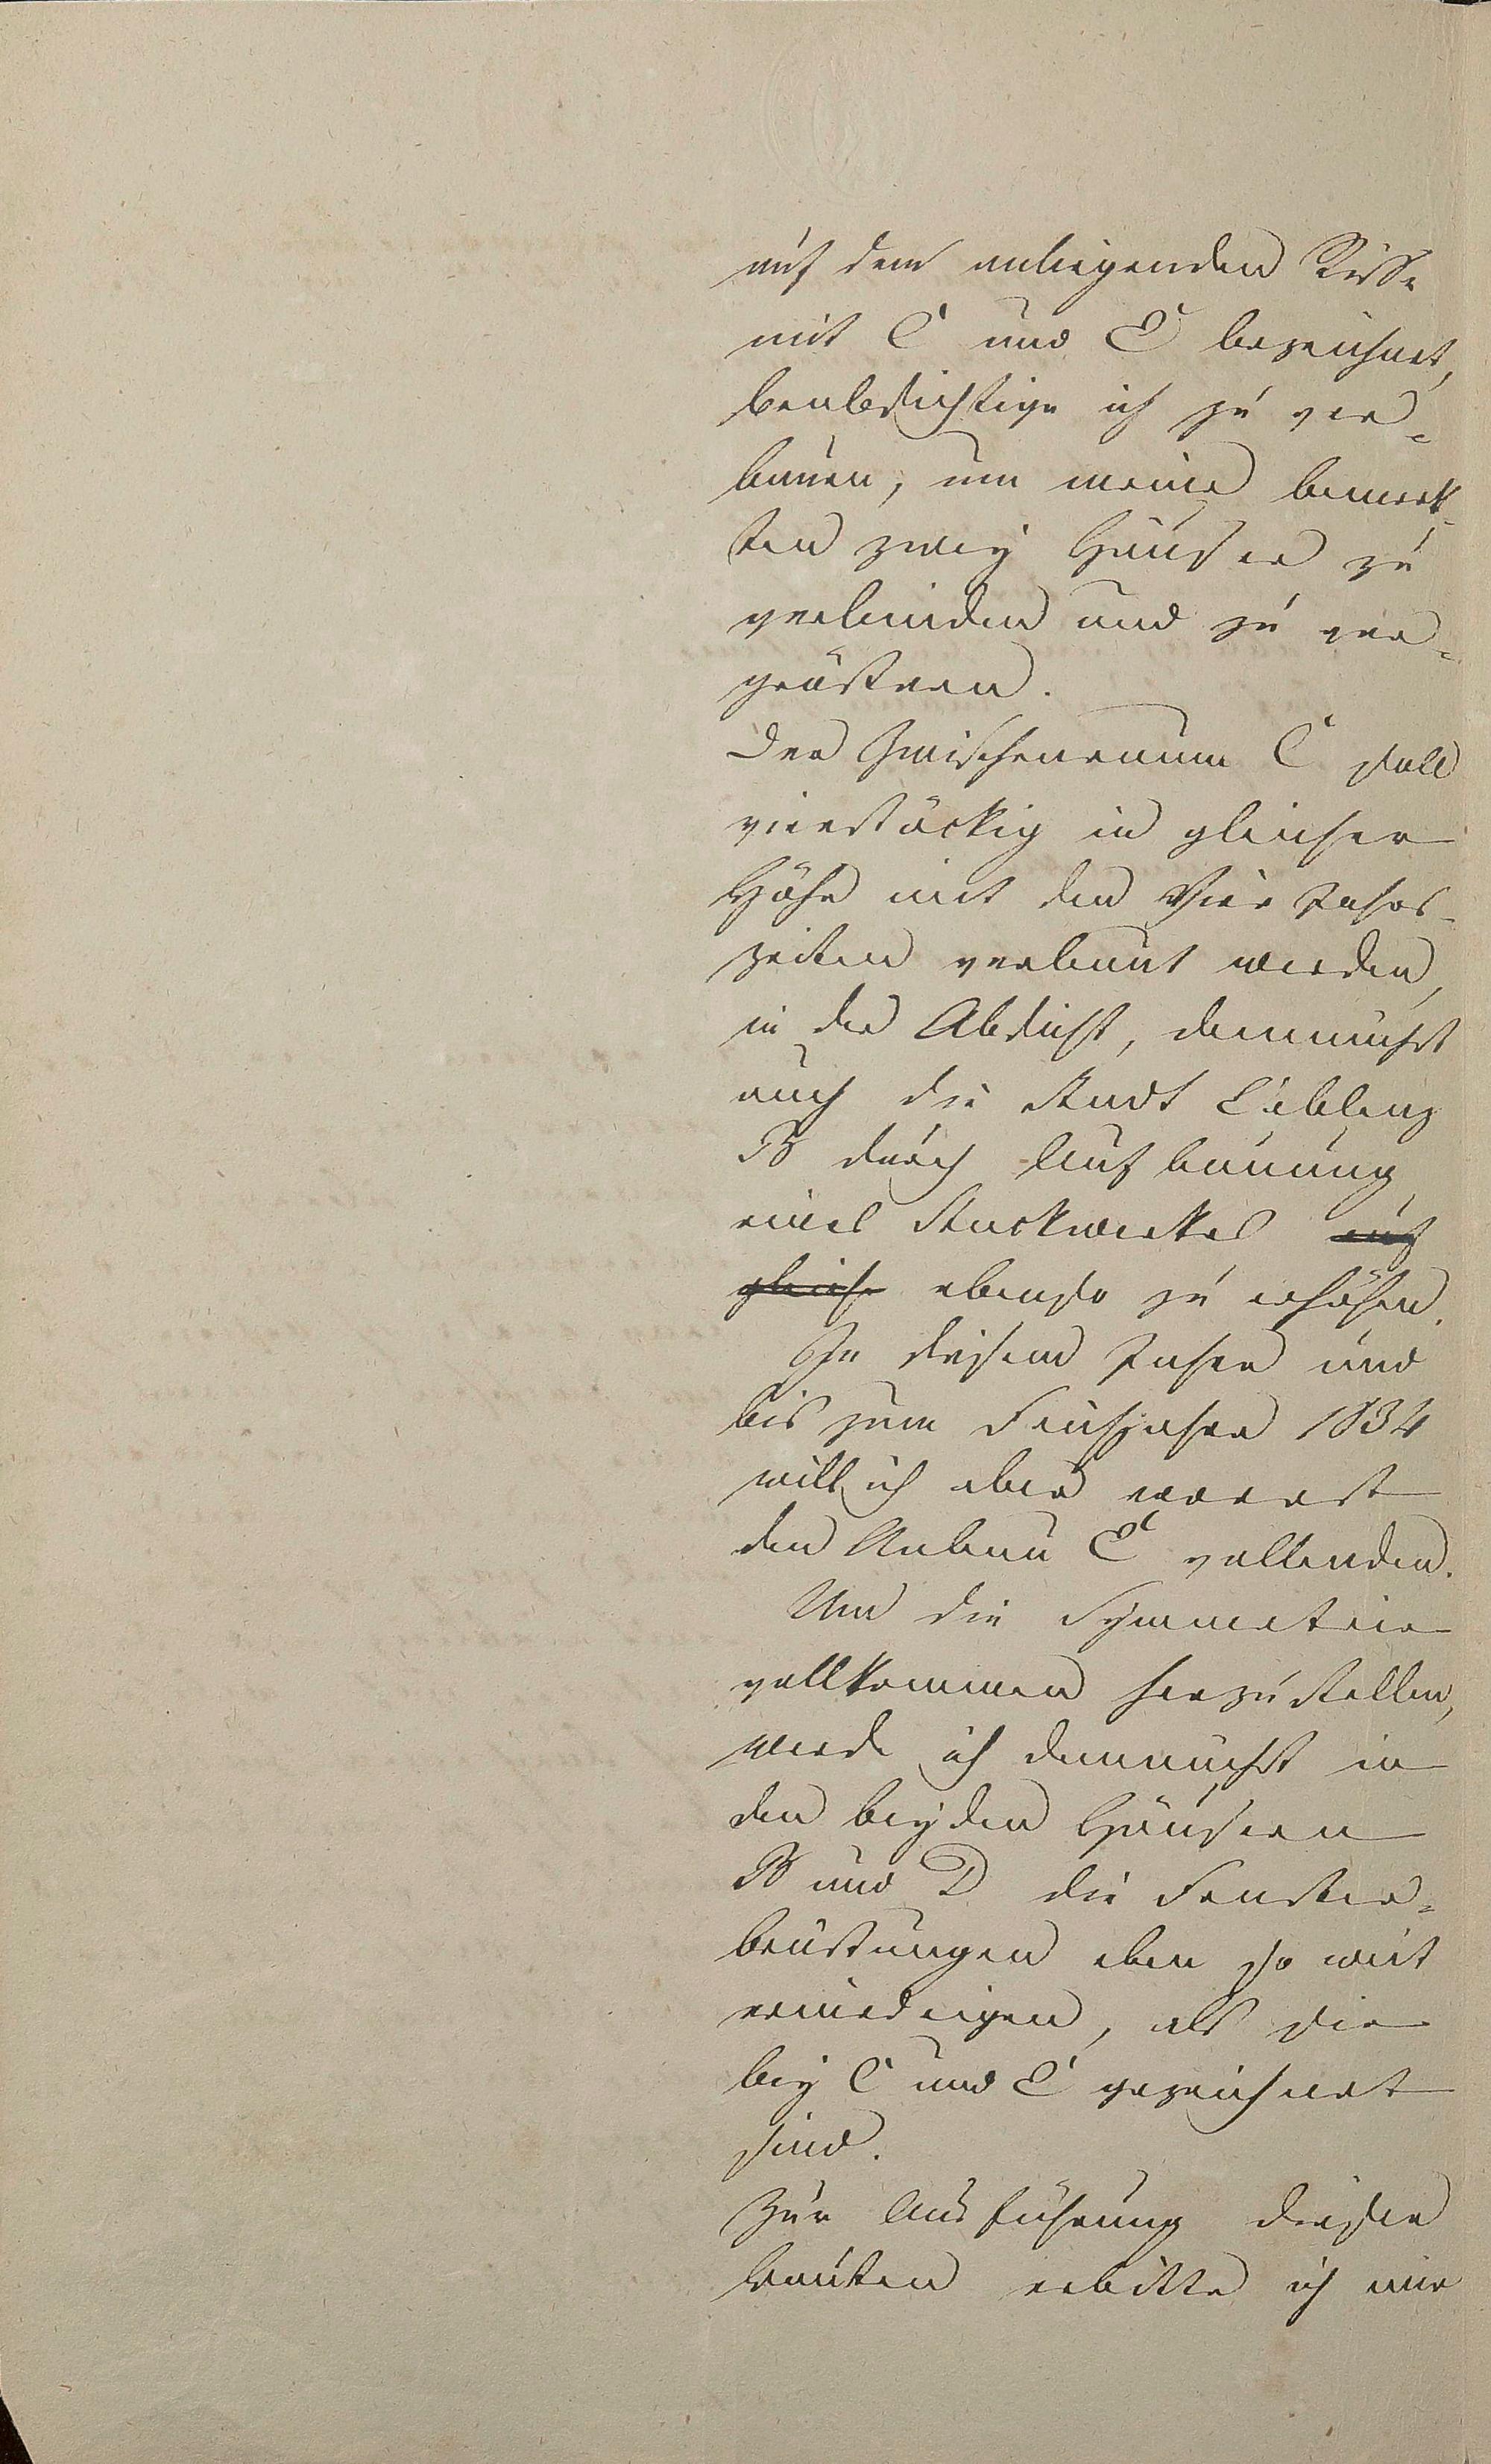 auf dem anliegenden Risse
mit C und E bezeichnet,
beabsichtige ich zu ver-
bauen, um meine bemerk-
ten zwey Häuser zu
verbinden und zu ver-
größern.
Der Zwischenraum C soll
vierstöckig in gleicher
Höhe mit den Vier Jahrs-
zeiten verbaut werden,
in der Absicht, demnächst
auch die Stadt Coblenz
B durch Aufbauung
eines Stockwerkes auf
gleiche ebenso zu erhöhen.
In diesem Jahre und
bis zum Frühjahre 1834
will ich aber vorerst
den Anbau E vollenden.
Um die Symmetrie
vollkommen herzustellen,
werde ich demnächst in
den beyden Häusern
B und D die Fenster-
brüstungen eben so weit
erniedrigen, als sie
bey C und E gezeichnet
sind.
Zur Ausführung dieser
Bauten erbitte ich mir